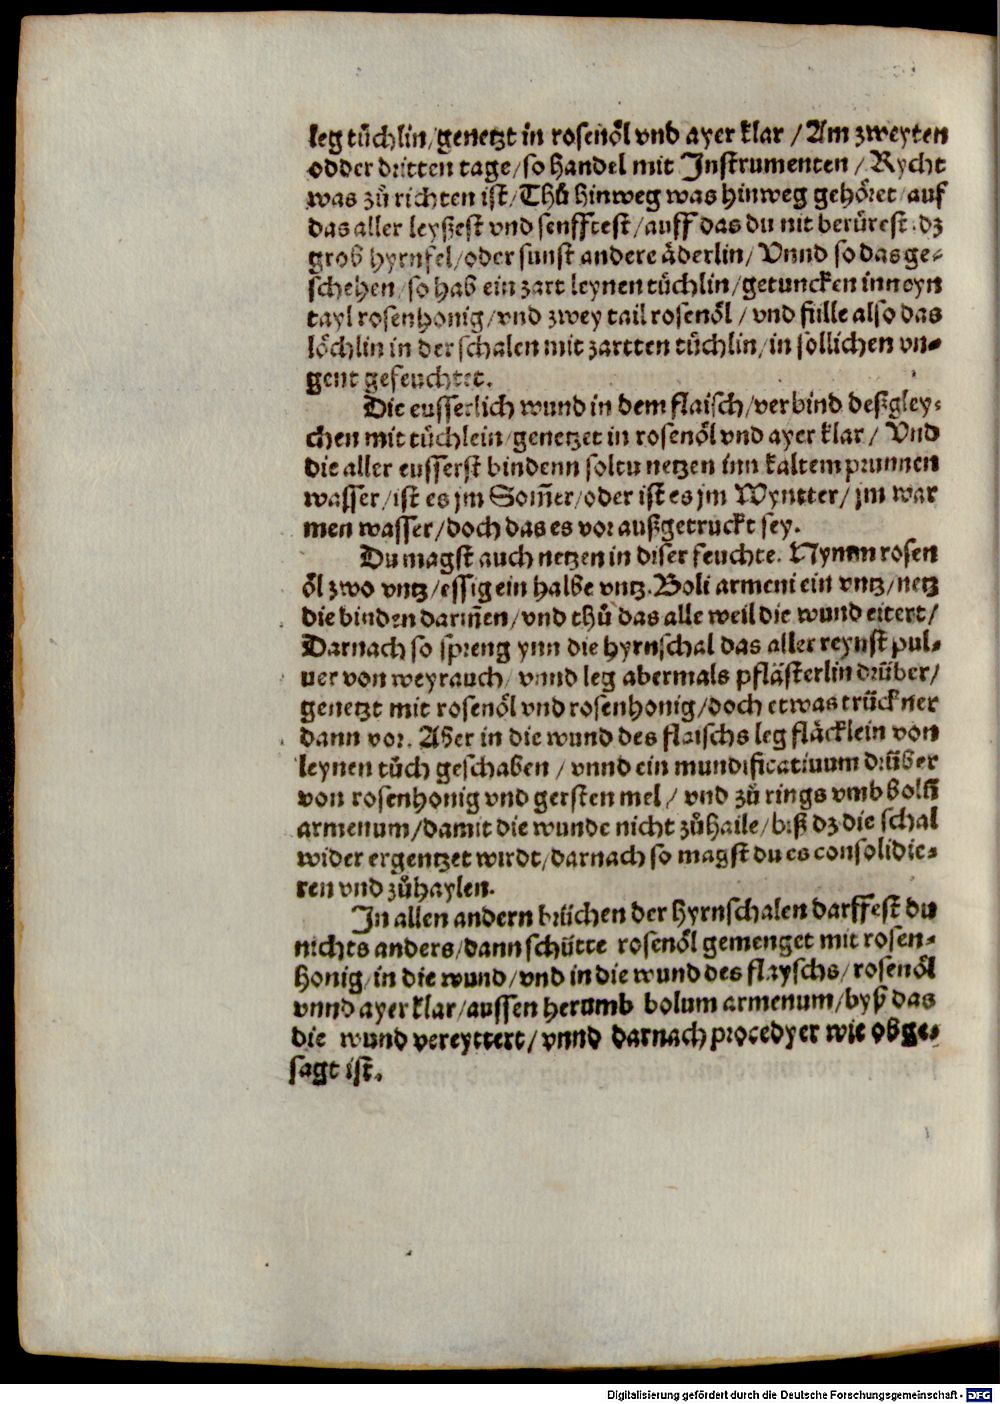 leg tuͤchlin/genetzt in rosenoͤl vnd ayer klar / Am zweyten
odder dritten tage/so handel mit Instrumenten / Rycht
was zuͦ richten ist/Thuͦ hinweg was hinweg gehoͤret/auf
das aller leyßest vnd senfftest/auff das du nit beruͤrest.dz
grob hyrnfel/oder sunst andere aͤderlin/ Vnnd so das ge⸗
schehen/so hab ein zart leynen tuͤchlin/getuncken inn eyn
tayl rosenhonig/vnd zwey tail rosenoͤl / vnd fuͤlle also das
loͤchlin in der schalen mit zartten tuͤchlin/in sollichen vn⸗
gent gefeuchtet.
Die eusserlich wund in dem flaisch/verbind deßgley⸗
chen mit tuͤchlein/genetzet in rosenoͤl vnd ayer klar / Vnd
die aller eusserst bindenn soltu netzen inn kaltem prunnen
wasser/ist es jm Som̃er/oder ist es jm Wyntter/ jm war
men wasser/doch das es vor außgetruckt sey.
Du magst auch netzen in diser feuchte. Nymm rosen
oͤl zwo vntz/essig ein halbe vntz.Boli armeni ein vntz/netz
die binden dariñen/vnd thuͦ das alle weil die wund eitert/
Darnach so spreng ynn die hyrnschal das aller reynst pul⸗
uer von weyrauch/ vnnd leg abermals pflaͤsterlin druͤber/
genetzt mit rosenoͤl vnd rosenhonig/doch etwas truͤckner
dann vor. Aber in die wund des flaischs leg flaͤcklein von
leynen tuͦch geschaben / vnnd ein mundificatiuum druͤber
von rosenhonig vnd gersten mel / vnd zuͦ rings vmb bolũ
armenum/damit die wunde nicht zuͦhaile/biß dz die schal
wider ergentzet wirdt/darnach so magst du es consolidie⸗
ren vnd zuͦhaylen.
In allen andern bruͤchen der hyrnschalen darffest du
nichts anders/dann schuͤtte rosenoͤl gemenget mit rosen⸗
honig/in die wund/vnd in die wund des flayschs/rosenoͤl
vnnd ayer klar/aussen herumb bolum armenum/byß das
die wund vereyttert/vnnd darnach procedyer wie obge⸗
sagt ist.
Digitalisierung gefördert durch die Deutsche Forschungsgemeinschaft - DFG